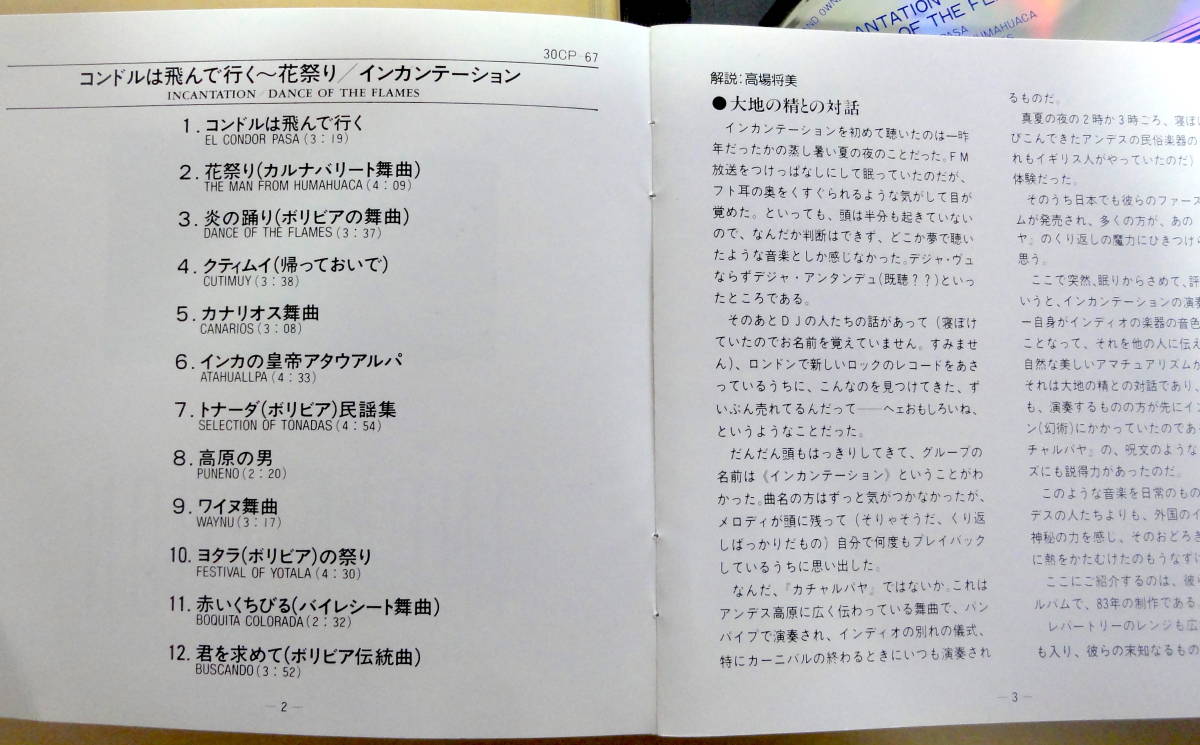 30CP-67
コンドルは飛んで行く～花祭り／インカンテーション
INCANTATION / DANCE OF THE FLAMES
1. コンドルは飛んで行く
EL CONDOR PASA (3:19)
2. 花祭り(カルナバリート舞曲)
THE MAN FROM HUMAHUACA (4:09)
3. 炎の踊り(ボリビアの舞曲)
DANCE OF THE FLAMES (3:37)
4. クティムイ(帰っておいで)
CUTIMUY (3:38)
5. カナリオス舞曲
CANARIOS (3:08)
6. インカの皇帝アタウアルパ
ATAHUALLPA (4:33)
7. トナーダ(ボリビア)民謡集
SELECTION OF TONADAS (4:54)
8. 高原の男
PUNENO (2:20)
9. ワイヌ舞曲
WAYNU (3:17)
10. ヨタラ(ボリビア)の祭り
FESTIVAL OF YOTALA (4:30)
11. 赤いくちびる(バイレシート舞曲)
BOQUITA COLORADA (2:32)
12. 君を求めて(ボリビア伝統曲)
BUSCANDO (3:52)
—2—
解説：高場将美
●大地の精との対話
インカンテーションを初めて聴いたのは一昨
年だったかの蒸し暑い夏の夜のことだった。FM
放送をつけっぱなしにして眠っていたのだが、
フト耳の奥をくすぐられるような気がして目が
覚めた。といっても、頭は半分も起きていない
ので、なんだか判断はできず、どこか夢で聴い
たような音楽としか感じなかった。デジャ・ヴュ
ならずデジャ・アンタンデュ(既聴？？)といっ
たところである。
そのあとDJの人たちの話があって（寝ぼけ
ていたのでお名前を覚えていません。すみませ
ん）、ロンドンで新しいロックのレコードをあさ
っているうちに、こんなのを見つけてきた、ず
いぶん売れてるんだって——ヘェおもしろいね、
というようなことだった。
だんだん頭もはっきりしてきて、グループの
名前は《インカンテーション》ということがわ
かった。曲名の方はずっと気がつかなかったが、
メロディが頭に残って（そりゃそうだ、くり返
しばっかりだもの）自分で何度もプレイバック
しているうちに思い出した。
なんだ、『カチャルパヤ』ではないか。これは
アンデス高原に広く伝わっている舞曲で、パン
パイプで演奏され、インディオの別れの儀式、
特にカーニバルの終わるときにいつも演奏され
るものだ。
真夏の夜の2時か3時ごろ、寝ぼけ
びこんできたアンデスの民俗楽器の
れもイギリス人がやっていたのだ）
体験だった。
そのうち日本でも彼らのファース
ムが発売され、多くの方が、あの
ヤ』のくり返しの魔力にひきつけら
思う。
ここで突然、眠りからさめて、評
いうと、インカンテーションの演奏
ー自身がインディオの楽器の音色
ことなって、それを他の人に伝え
自然な美しいアマチュアリズムが
それは大地の精との対話であり、
も、演奏するものの方が先にイン
ン(幻術)にかかっていたのである
チャルパヤ』の、呪文のような
ズにも説得力があったのだ。
このような音楽を日常のもの
デスの人たちよりも、外国のイ
神秘の力を感じ、そのおどろき
に熱をかたむけたのもうなずけ
ここにご紹介するのは、彼ら
ルバムで、83年の制作である
レパートリーのレンジも広
も入り、彼らの未知なるもの
—3—
AND OWNE
NCANTATION
OF THE FL
PASA
HUMAHUACA